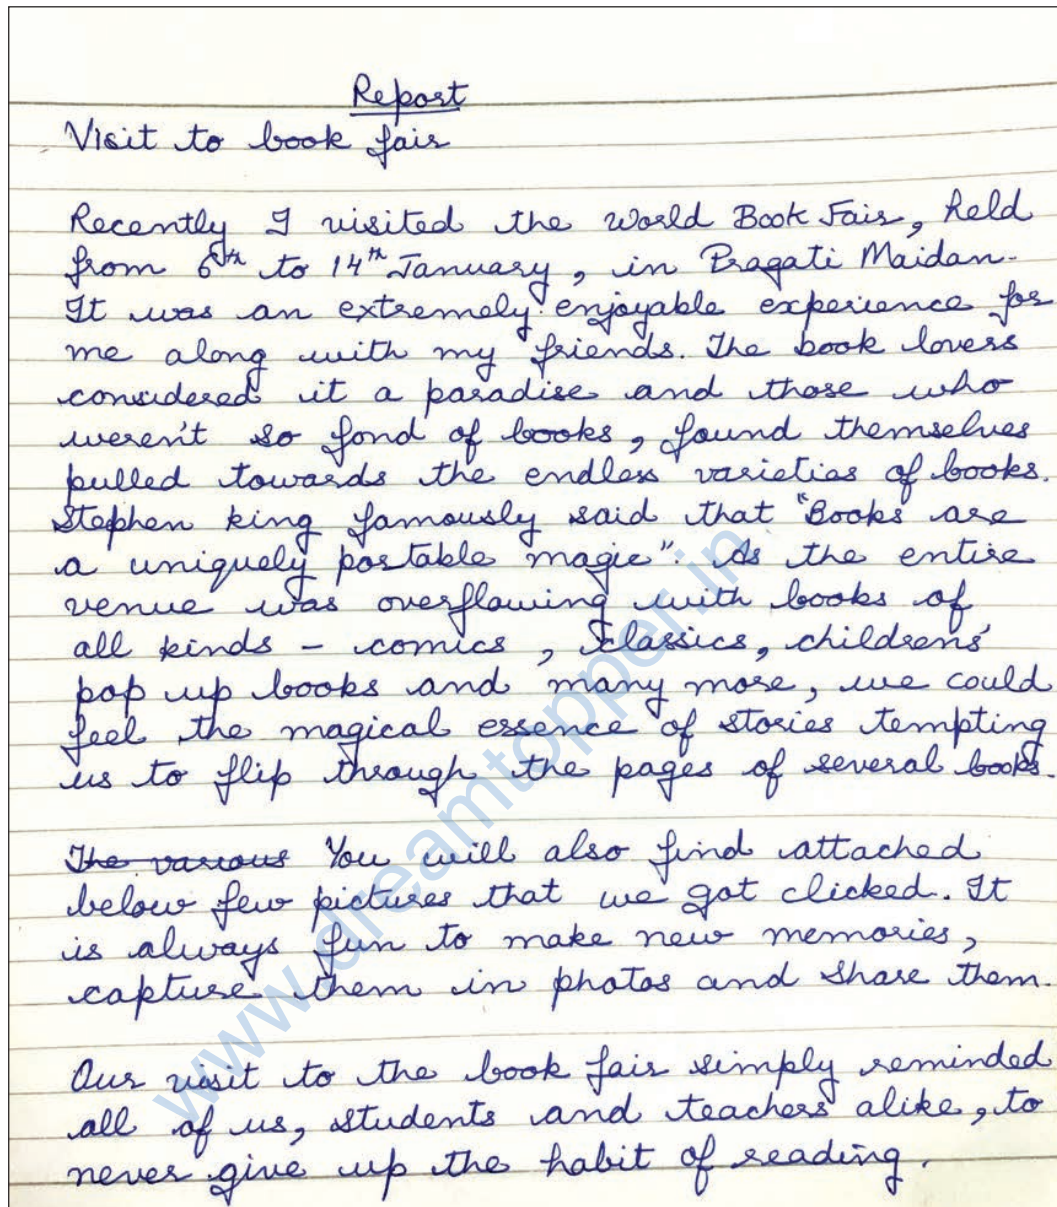 Report
Visit to book fair
Recently I visited the World Book Fair, held
from 6th to 14th January, in Pragati Maidan.
It was an extremely enjoyable experience for
me along with my friends. The book lovers
considered it a paradise and those who
weren't so fond of books, found themselves
pulled towards the endless varieties of books.
Stephen king famously said that "Books are
a uniquely portable magic". As the entire
venue was overflowing with books of
all kinds - comics, classics, childrens'
pop up books and many more, we could
feel the magical essence of stories tempting
us to flip through the pages of several books.
The various You will also find attached
below few pictures that we got clicked. It
is always fun to make new memories,
capture them in photos and share them.
Our visit to the book fair simply reminded
all of us, students and teachers alike, to
never give up the habit of reading.
www.dreamtopper.in